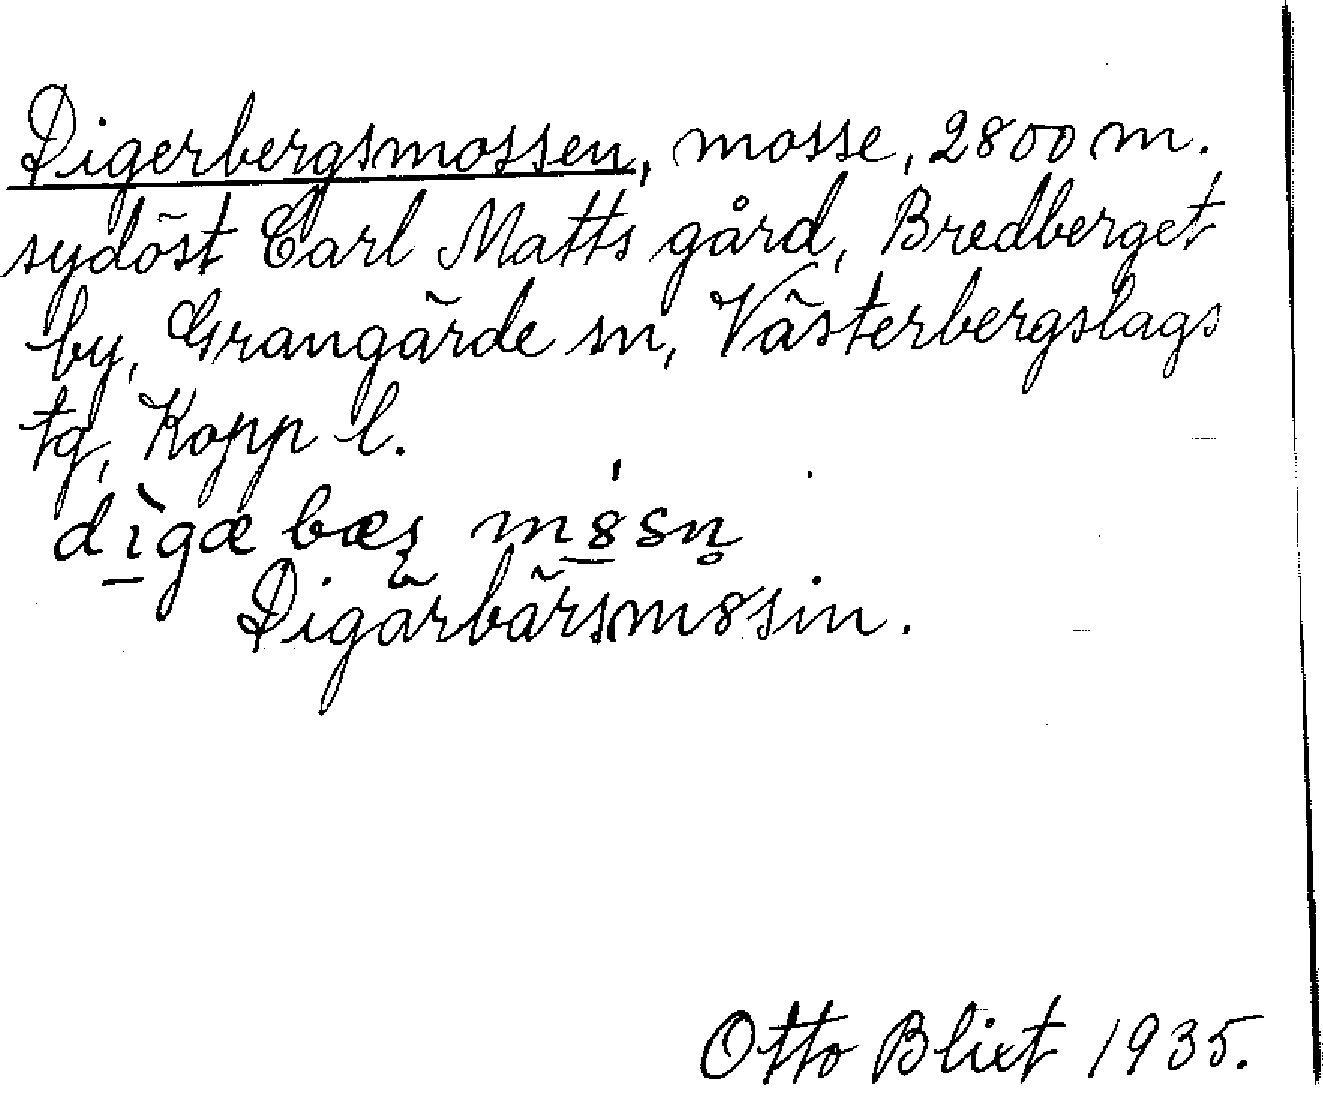 Digerbergsmossen, mosse, 2800 m.
sydöst Carl Matts gård, Bredberget
by, Grangärde sn, Västerbergslags
tg, Kopp l.
dìgæ bæʂ m8sn̥
Digärbärsm8sin.
Otto Blixt 1935.